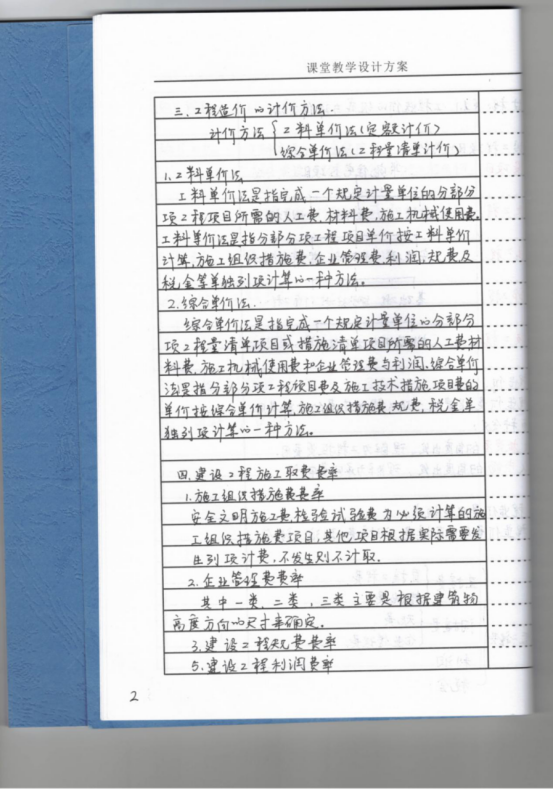 课堂教学设计方案
三、工程造价的计价方法.
计价方法 { 工料单价法(定额计价)
综合单价法(工程量清单计价)
1.工料单价法
工料单价法是指完成一个规定计量单位的分部分
项工程项目所需的人工费、材料费、施工机械使用费.
工料单价法是指分部分项工程项目单价按工料单价
计算,施工组织措施费、企业管理费、利润、规费及
税金等单独列项计算的一种方法。
2.综合单价法.
综合单价法是指完成一个规定计量单位的分部分
项工程量清单项目或措施清单项目所需的人工费、材
料费、施工机械使用费和企业管理费与利润.综合单价
法是指分部分项工程项目费及施工技术措施项目费的
单价按综合单价计算,施工组织措施费、规费、税金单
独列项计算的一种方法。
四.建设工程施工取费费率
1.施工组织措施费费率
安全文明施工费、检验试验费为必须计算的施
工组织措施费项目,其他项目根据实际需要发
生列项计费,不发生则不计取.
2.企业管理费费率
其中一类、二类,三类主要是根据建筑物
高度方向的尺寸来确定。
3.建设工程规费费率
5.建设工程利润费率
2